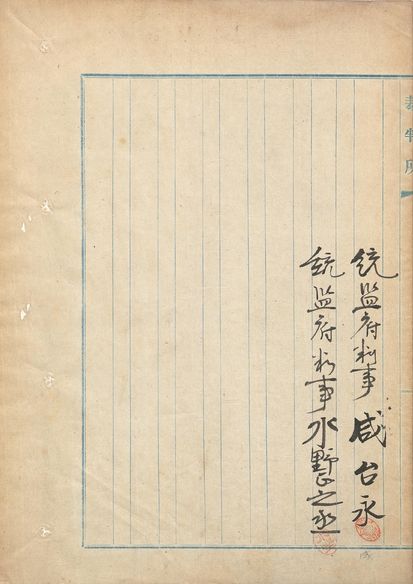 統監府判事 咸台永
統監府判事 水野正之丞
裁判所